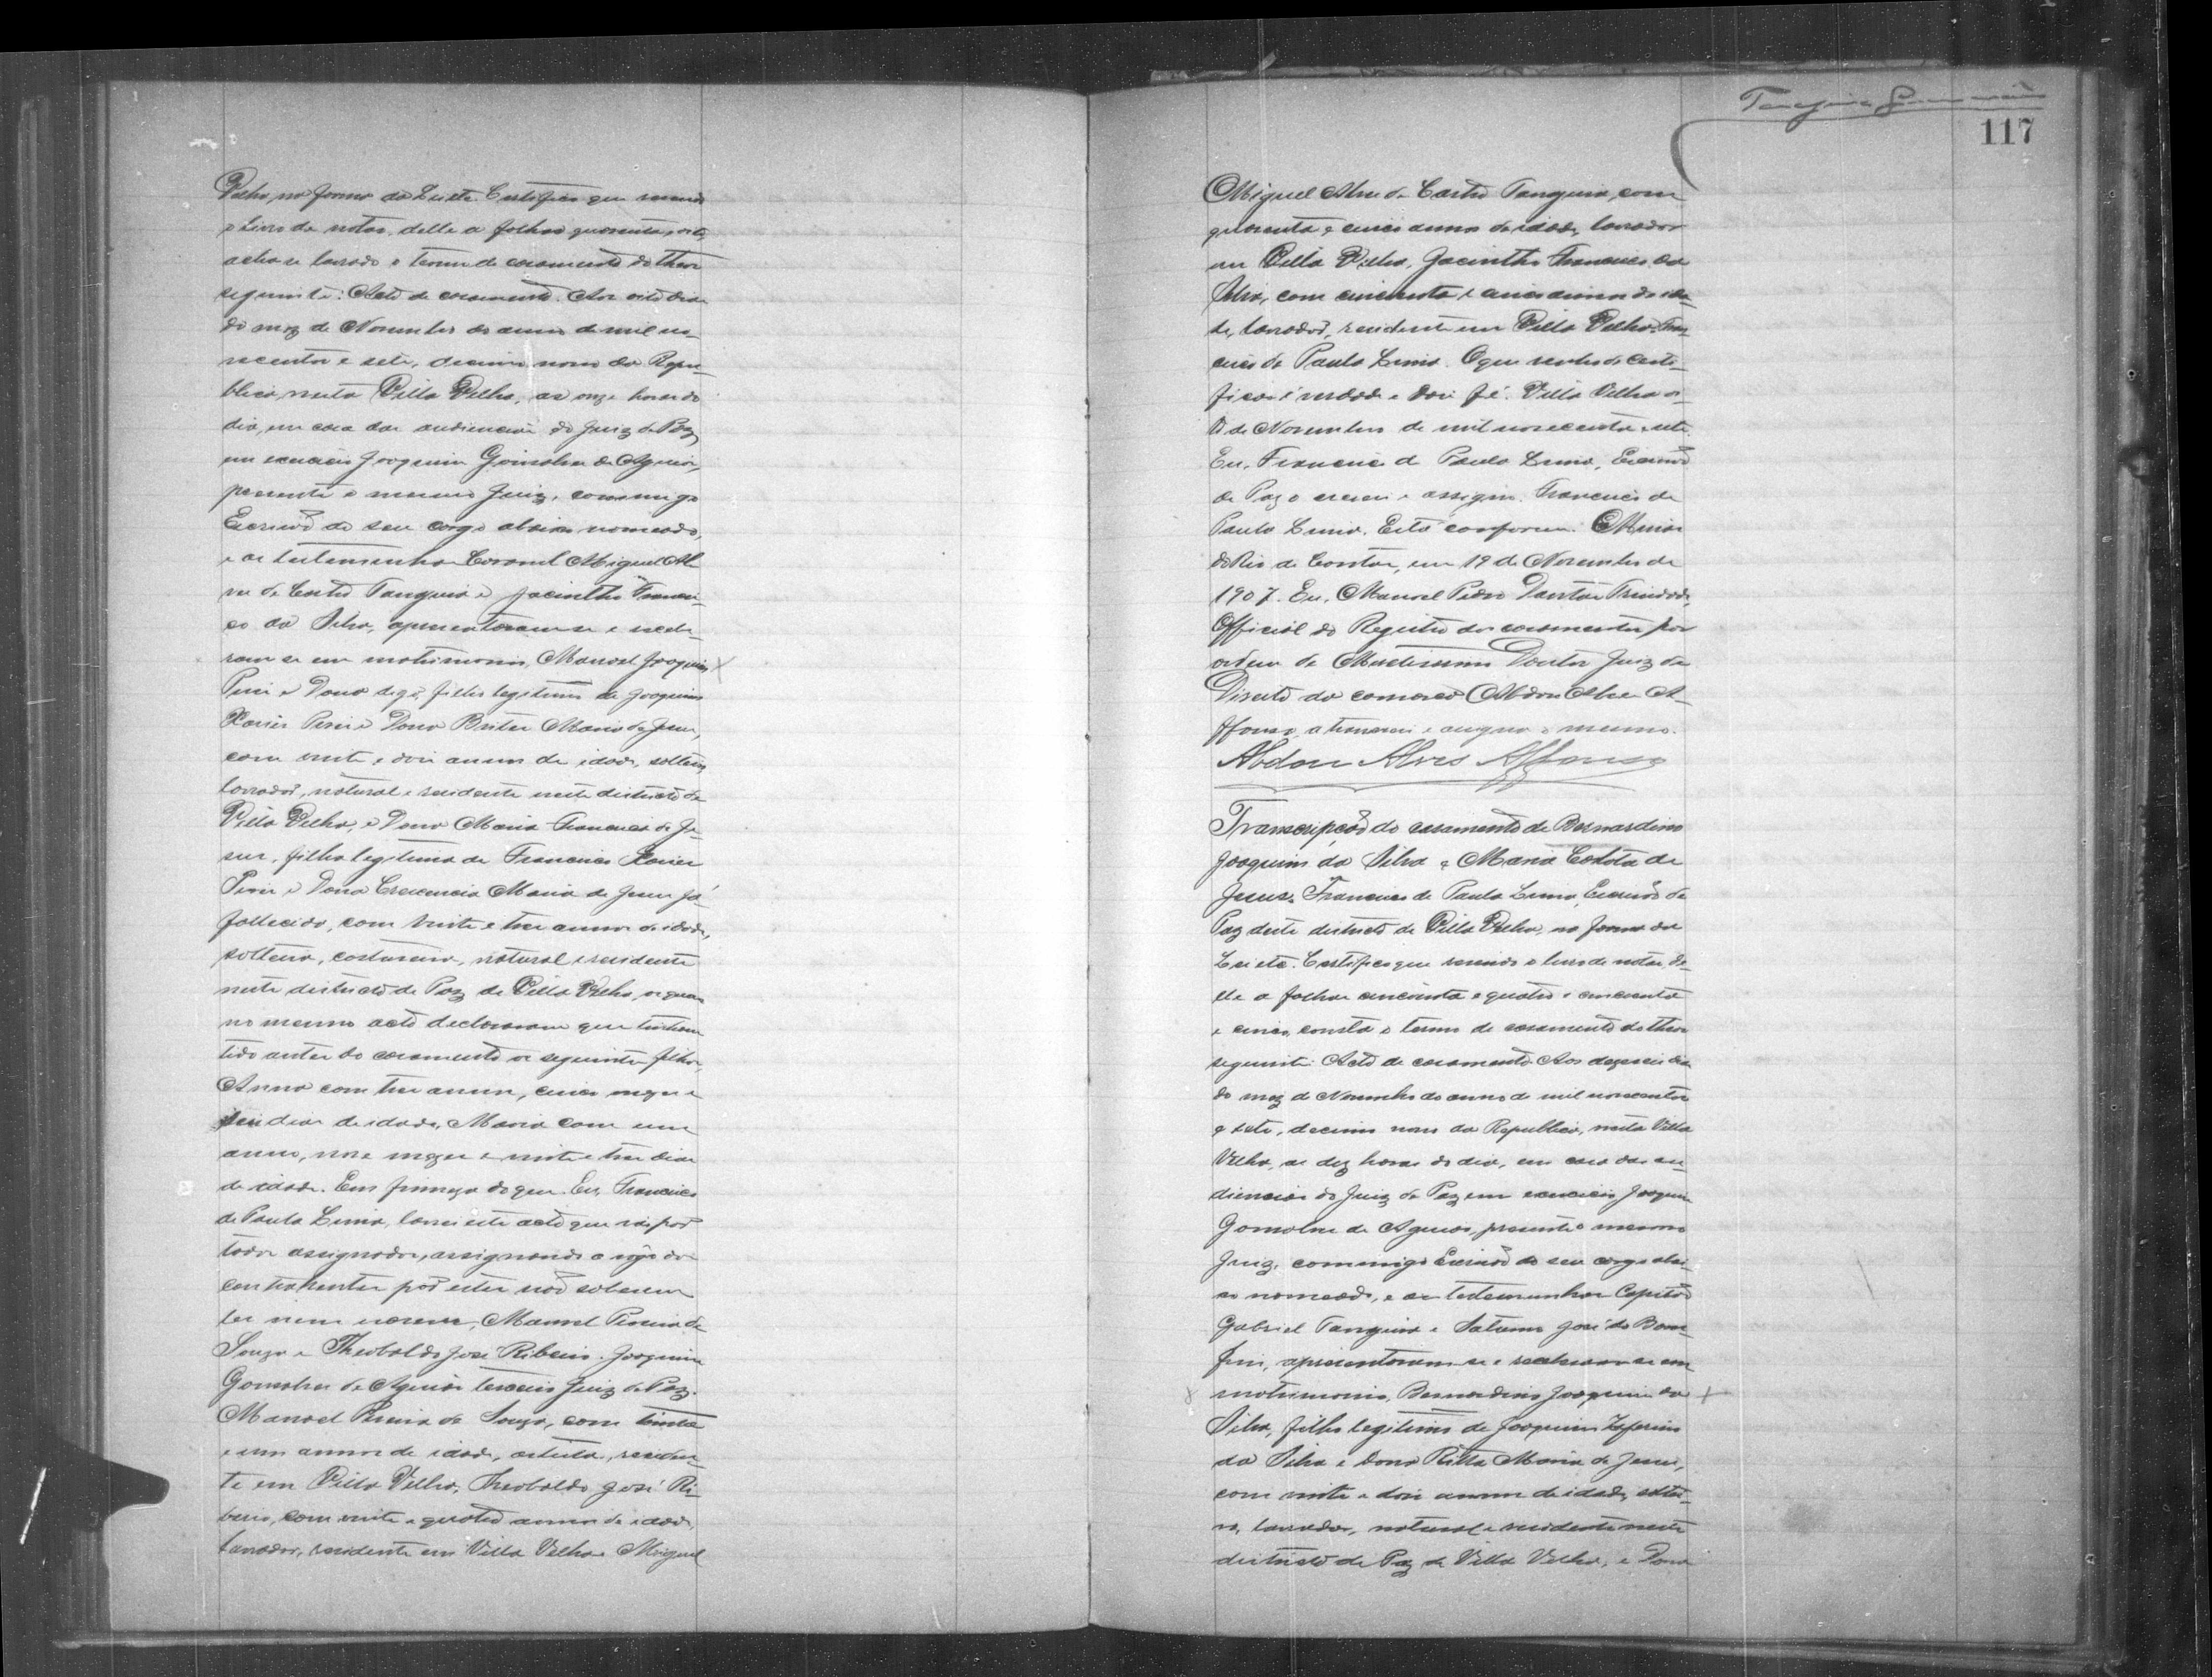 Velha, na forma da Lei etc. Certifico que revendo
o Livro de notas, delle a folhas quarenta e oito,
acha-se lavrado o termo de casamento do theor
seguinte: Acto de casamento. Aos oito dias
do mez de Novembro do anno de mil no-
vecentos e sete, decimo nono da Repu-
blica, nesta Villa Velha, as onze horas do
dia, em casa das audiencias do Juiz de Paz
em exercicio Joaquim Gonsalves de Aguiar,
presente o mesmo Juiz, commigo
Escrivão do seu cargo abaixo nomeado,
e as testemunhas Coronel Miguel Al-
ves de Castro Tanquera e Jacintho Francis-
co da Silva, apresentaram-se e recebe-
ram-se em matrimonio, Manoel Joaquim
Pires e Dona digo, filho legitimo de Joaquim
Xavier Pires e Dona Brites Maria de Jesus,
com vinte e dois annos de idade, solteiro,
lavrador, natural e residente neste districto de
Villa Velha, e Dona Maria Francisca de Je-
sus, filha legitima de Francisco Xavier
Pires e Dona Crescencia Maria de Jesus já
fallecida, com vinte e tres annos de idade,
solteira, costureira, natural e residente
neste districto de Paz de Villa Velha, os quaes
no mesmo acto declararam que tinham
tido antes do casamento os seguintes filhos,
Anna com tres annos, cinco mezes e
seis dias de idade, Maria com um
anno, nove mezes e vinte e tres dias
de idade. Em firmeza do que Eu, Francisco
de Paula Lima, lavrei este acto que vai por
todos assignados, assignando a rogo dos
contrahentes por estes não saberem
ler nem escrever, Manoel Pereira de
Souza e Theobaldo José Ribeiro. Joaquim
Gonsalves de Aguiar terceiro Juiz de Paz.
Manoel Pereira de Souza, com trinta
e um annos de idade, artista, residen-
te em Villa Velha, Theobaldo José Ri-
beiro, com vinte e quatro annos de idade,
lavrador, residente em Villa Velha. Miguel
117
Miguel Alves de Castro Tanquera, com
quarenta e cinco annos de idade, lavrador
em Villa Velha, Jacintho Francisco da
Silva, com cincoenta e cinco annos de ida-
de, lavrador, residente em Villa Velha. Fran-
cisco de Paula Lima. O que venho de certi-
ficar é verdade e dou fé. Villa Velha
de Novembro de mil novecentos e sete.
Eu, Francisco de Paula Lima, Escrivão
de Paz o escrevi e assigno. Francisco de
Paula Lima. Está conforme. Minas
do Rio de Contas, em 19 de Novembro de
1907. Eu, Manoel Pedro Dantas Trindade,
Official do Registro dos casamentos por
ordem do Meritissimo Doutor Juiz de
Direito da comarca Abdon Alves A-
ffonso, a transcrevi e assigna o mesmo.
Abdon Alves Affonso
Transcripção do casamento de Bernardino
Joaquim da Silva e Maria Carlota de
Jesus. Francisco de Paula Lima, Escrivão de
Paz deste districto de Villa Velha, na forma da
Lei etc. Certifico que revendo o livro de notas, de-
lle a folhas cincoenta e quatro e cincoenta
e cinco, consta o termo de casamento do theor
seguinte: Acto de casamento. Aos dezeseis dias
do mez de Novembro do anno de mil novecentos
e sete, decimo nono da Republica, nesta Villa
Velha, as dez horas do dia, em casa das au-
diencias do Juiz de Paz em exercicio Joaquim
Gonsalves de Aguiar, presente o mesmo
Juiz, commigo Escrivão do seu cargo abai-
xo nomeado, e as testemunhas Capitão
Gabriel Tanquera e Saturno José do Bom-
fim, apresentaram-se e receberam-se em
matrimonio, Bernardino Joaquim da
Silva, filho legitimo de Joaquim Zeferino
da Silva e Dona Ritta Maria de Jesus,
com vinte e dois annos de idade, soltei-
ro, lavrador, natural e residente neste
districto de Paz de Villa Velha, e Dona